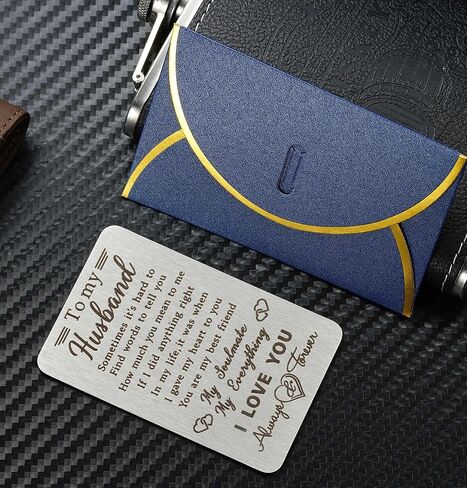 To my
Husband
Sometimes it's hard to
Find words to tell you
How much you mean to me
If I did anything right
In my life, it was when
I gave my heart to you
You are my best friend
My Soulmate
My Everything
I LOVE YOU
Always & Forever